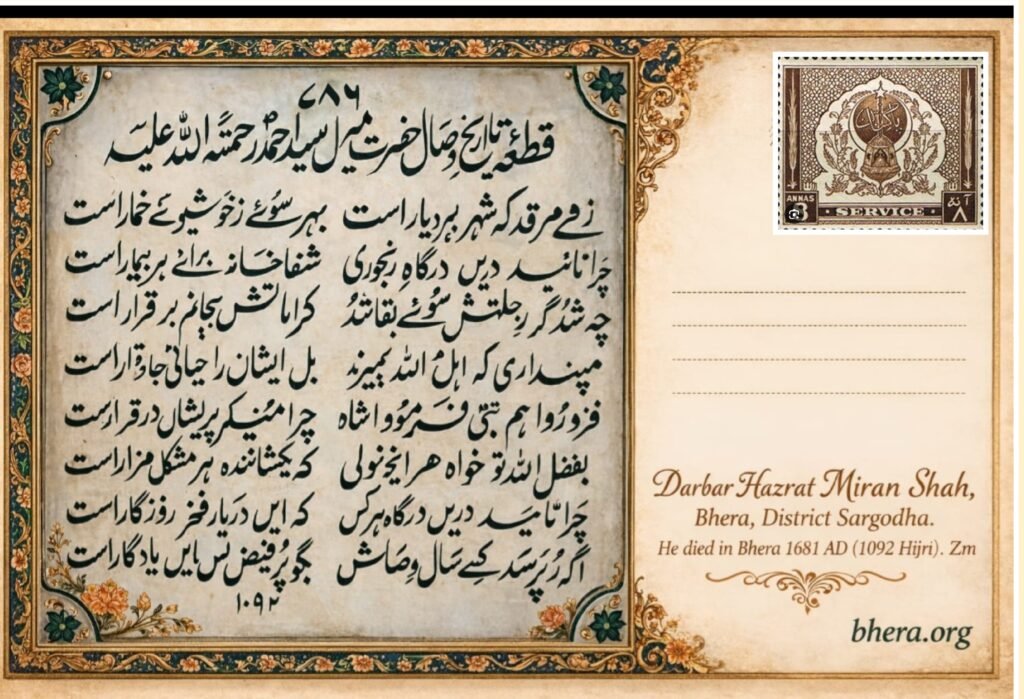 ۷۸۶
قطعۂ تاریخ وصال حضرت میراں سید احمد رحمتہ اللہ علیہ
زہے مرقد کہ شہر ہر دیار است بہر سوئے ز خوشبوئے خمار است
چرا نائید دریں درگاہ رنجوری شفاخانہ برائے ہر بیمار است
چہ شد گر رحلتش سوئے بقا شد کراماتش بجانم برقرار است
مپنداری کہ اہل اللہ بمیرند بل ایشاں را حیاتی جاوداراست
ہم نبی فرمود چرا پریشاں در قرار است
بفضل اللہ تو خواہ هر انچہ کہ ہر مشکل مزار است
چرا نائید دریں درگاہ ہر کس کہ ایں دربار فخر روزگار است
اگر پرسد کسے سال وصالش بگو پر فیض بس ایں یادگار است
۱۰۹۲
ANNAS
8
SERVICE
آنہ
۸
Darbar Hazrat Miran Shah,
Bhera, District Sargodha.
He died in Bhera 1681 AD (1092 Hijri). Zm
bhera.org